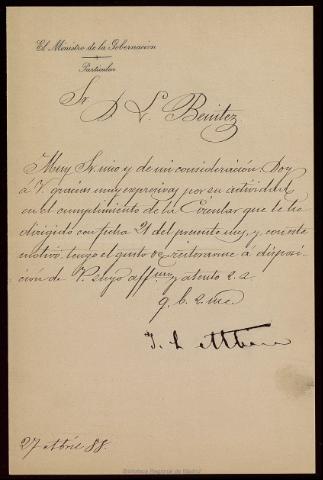 El Ministro de la Gobernacion
Particular
Sr. D L. Benitez
Muy Sr. mio y de mi consideración: Doy
á V. gracias muy expresivas por su actividad
en el cumplimiento de la Circular que le he
dirigido con fecha 21 del presente mes, y con este
motivo tengo el gusto de reiterarme á disposi-
ción de V. suyo affmo y atento s. s.
q. b. s. m.
27 Abril 88.
Biblioteca Regional de Madrid